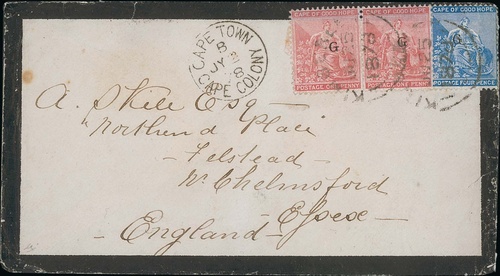 CAPE OF GOOD HOPE
CAPE OF GOOD HOPE
CAPE OF GOOD HOPE
G
G
G
POSTAGE ONE PENNY
POSTAGE ONE PENNY
POSTAGE FOUR PENCE
CAPE TOWN
8
JY
8
CAPE COLONY
A. Skill Esq
Northend Place
Felstead
Nr Chelmsford
Essex
England